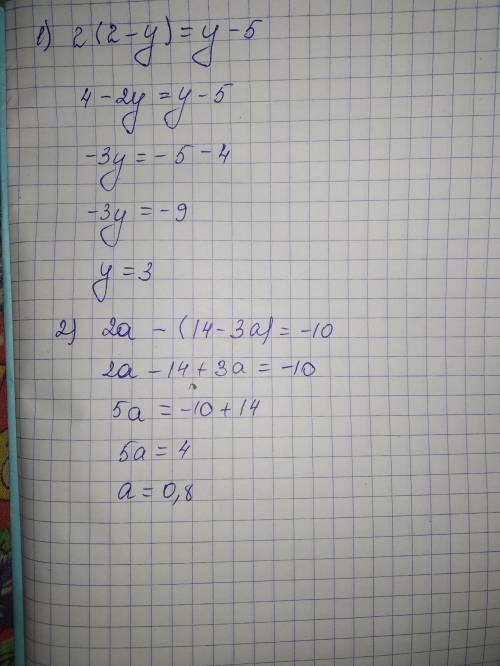 1) 2(2-y)=y-5
4-2y=y-5
-3y=-5-4
-3y=-9
y=3
2) 2a-(14-3a)=-10
2a-14+3a=-10
5a=-10+14
5a=4
a=0,8